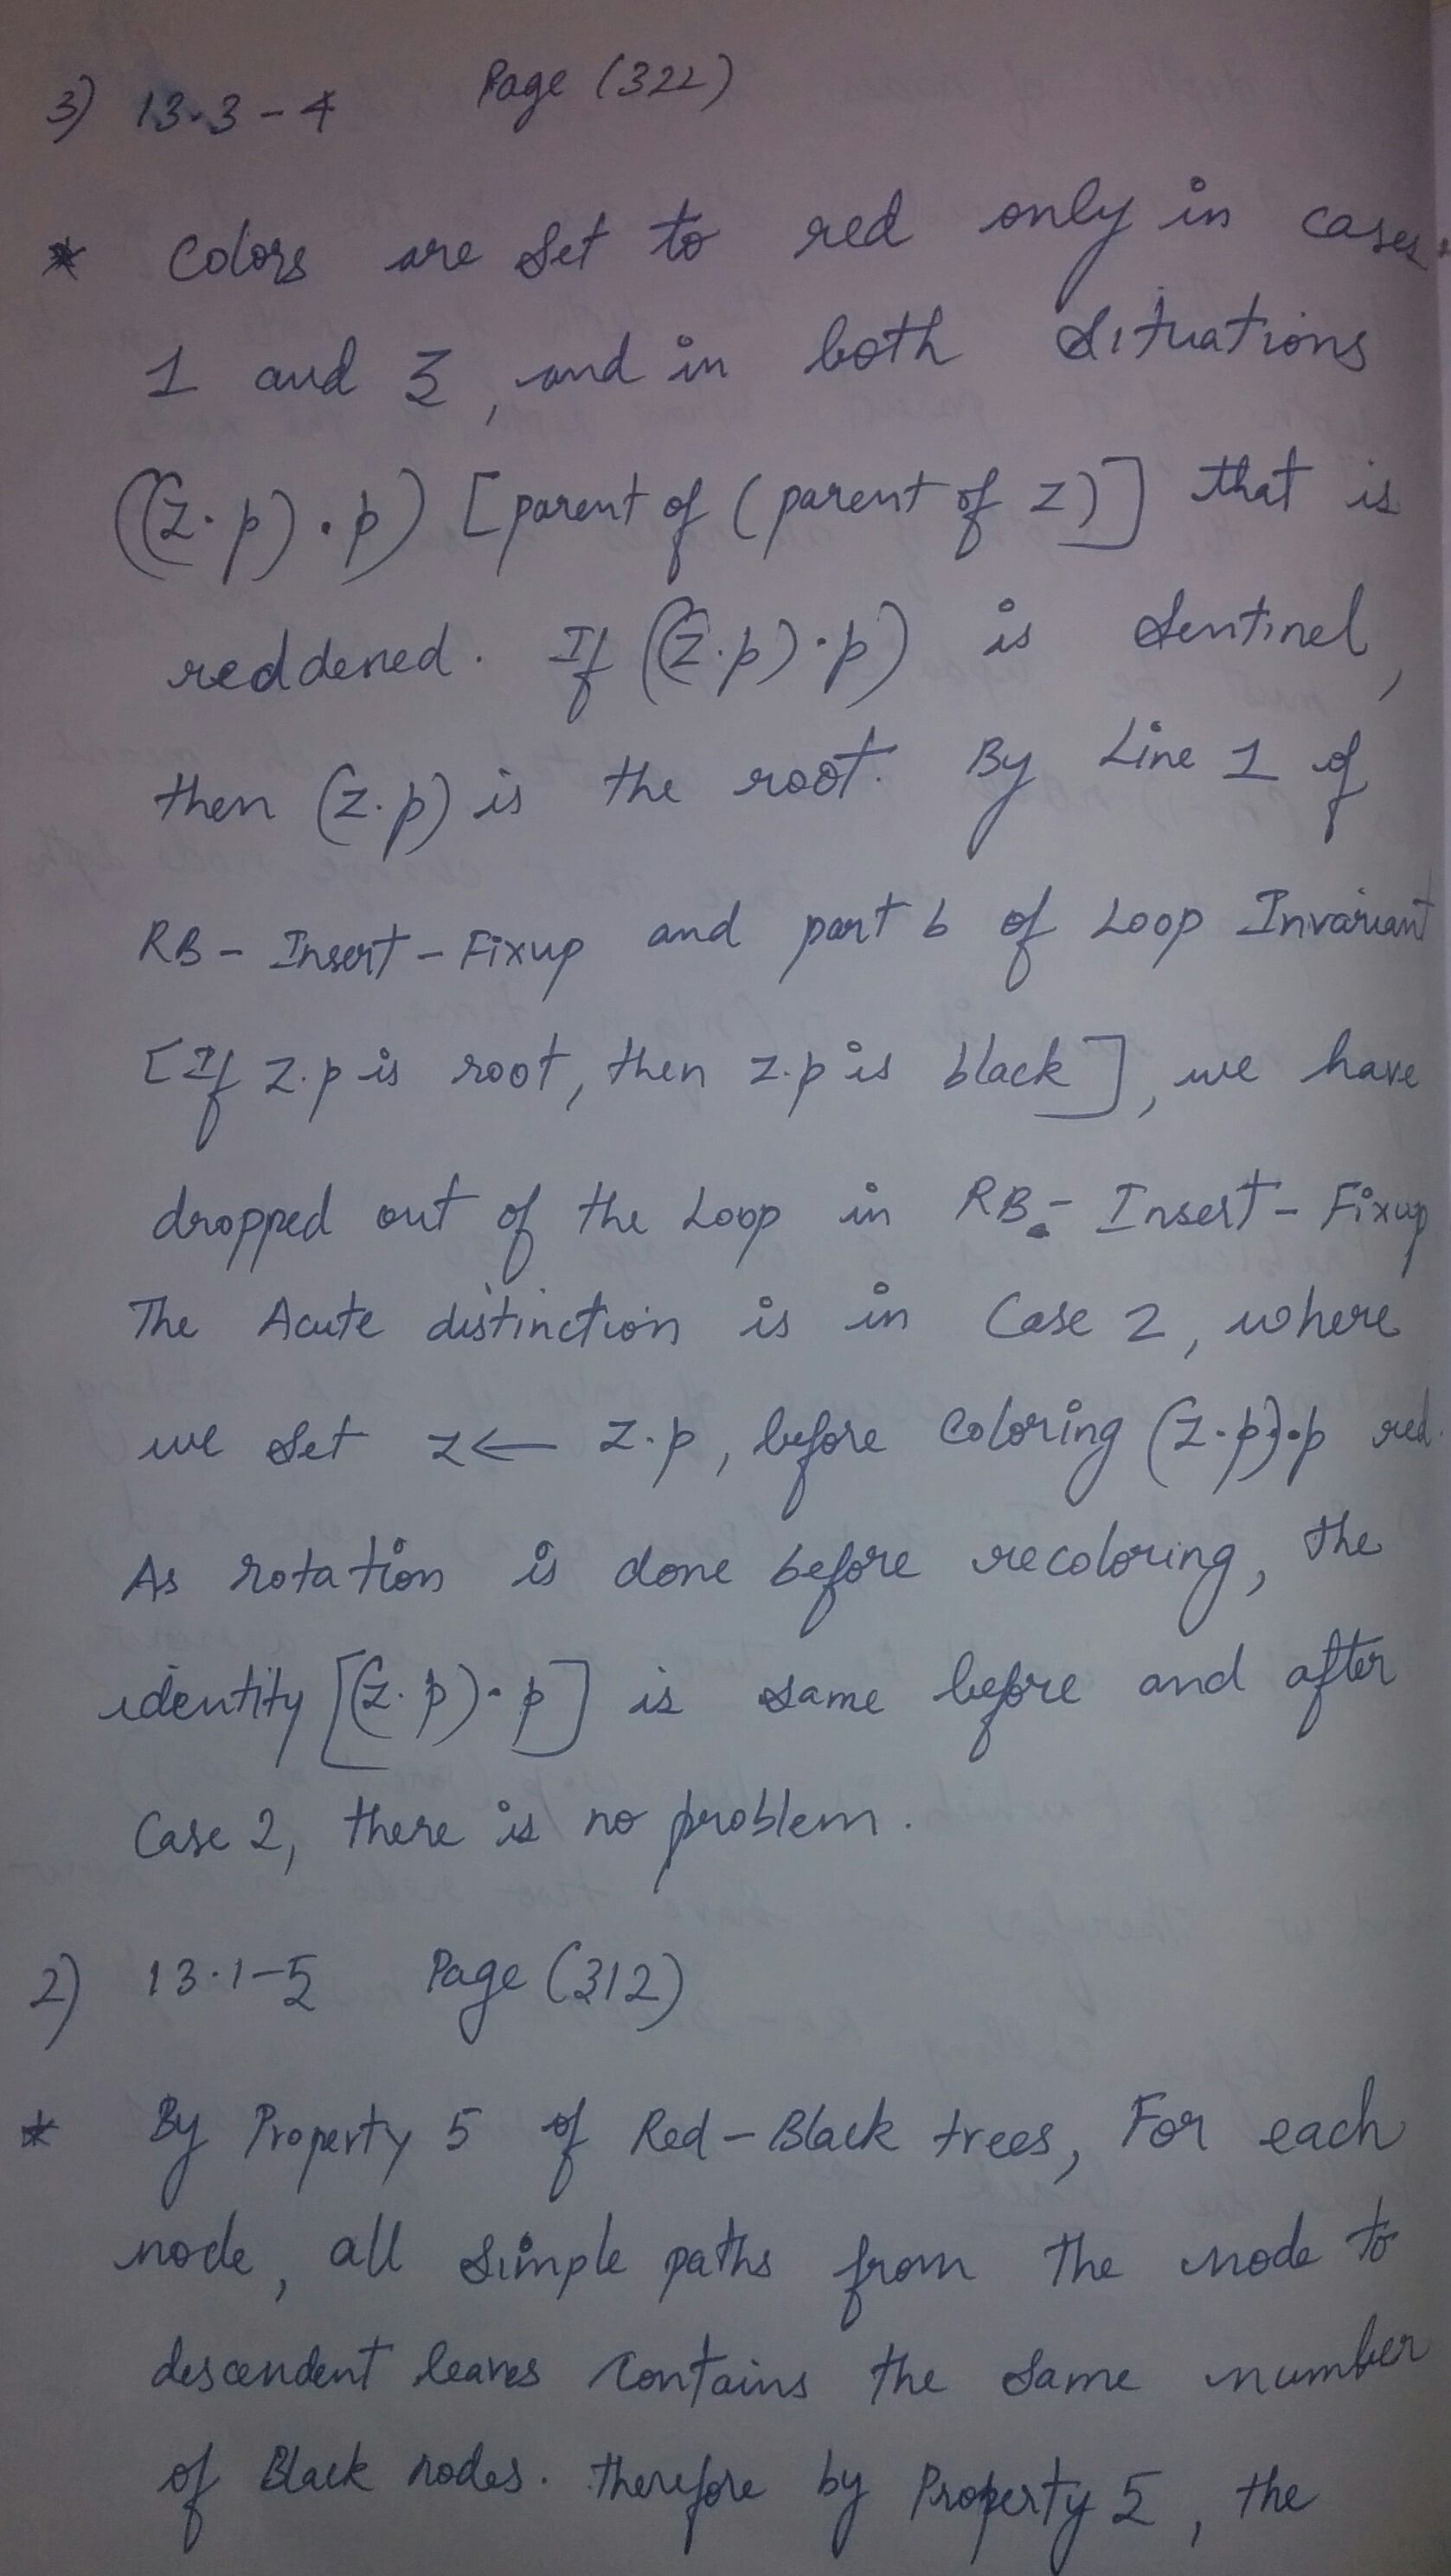 3) 13.3-4 Page (322)
* Colors are set to red only in cases
1 and 3, and in both situations
((z.p).p) [parent of (parent of z)] that is
reddened. If ((z.p).p) is sentinel,
then (z.p) is the root. By Line 1 of
RB-Insert-Fixup and part b of Loop Invariant
[If z.p is root, then z.p is black], we have
dropped out of the Loop in RB-Insert-Fixup
The Acute distinction is in Case 2, where
we set z← z.p, before coloring (z.p).p red.
As rotation is done before recoloring, the
identity [(z.p).p] is same before and after
Case 2, there is no problem.
2) 13.1-5 Page (312)
* By Property 5 of Red-Black trees, For each
node, all simple paths from the node to
descendent leaves contains the same number
of Black nodes. therefore by Property 5, the